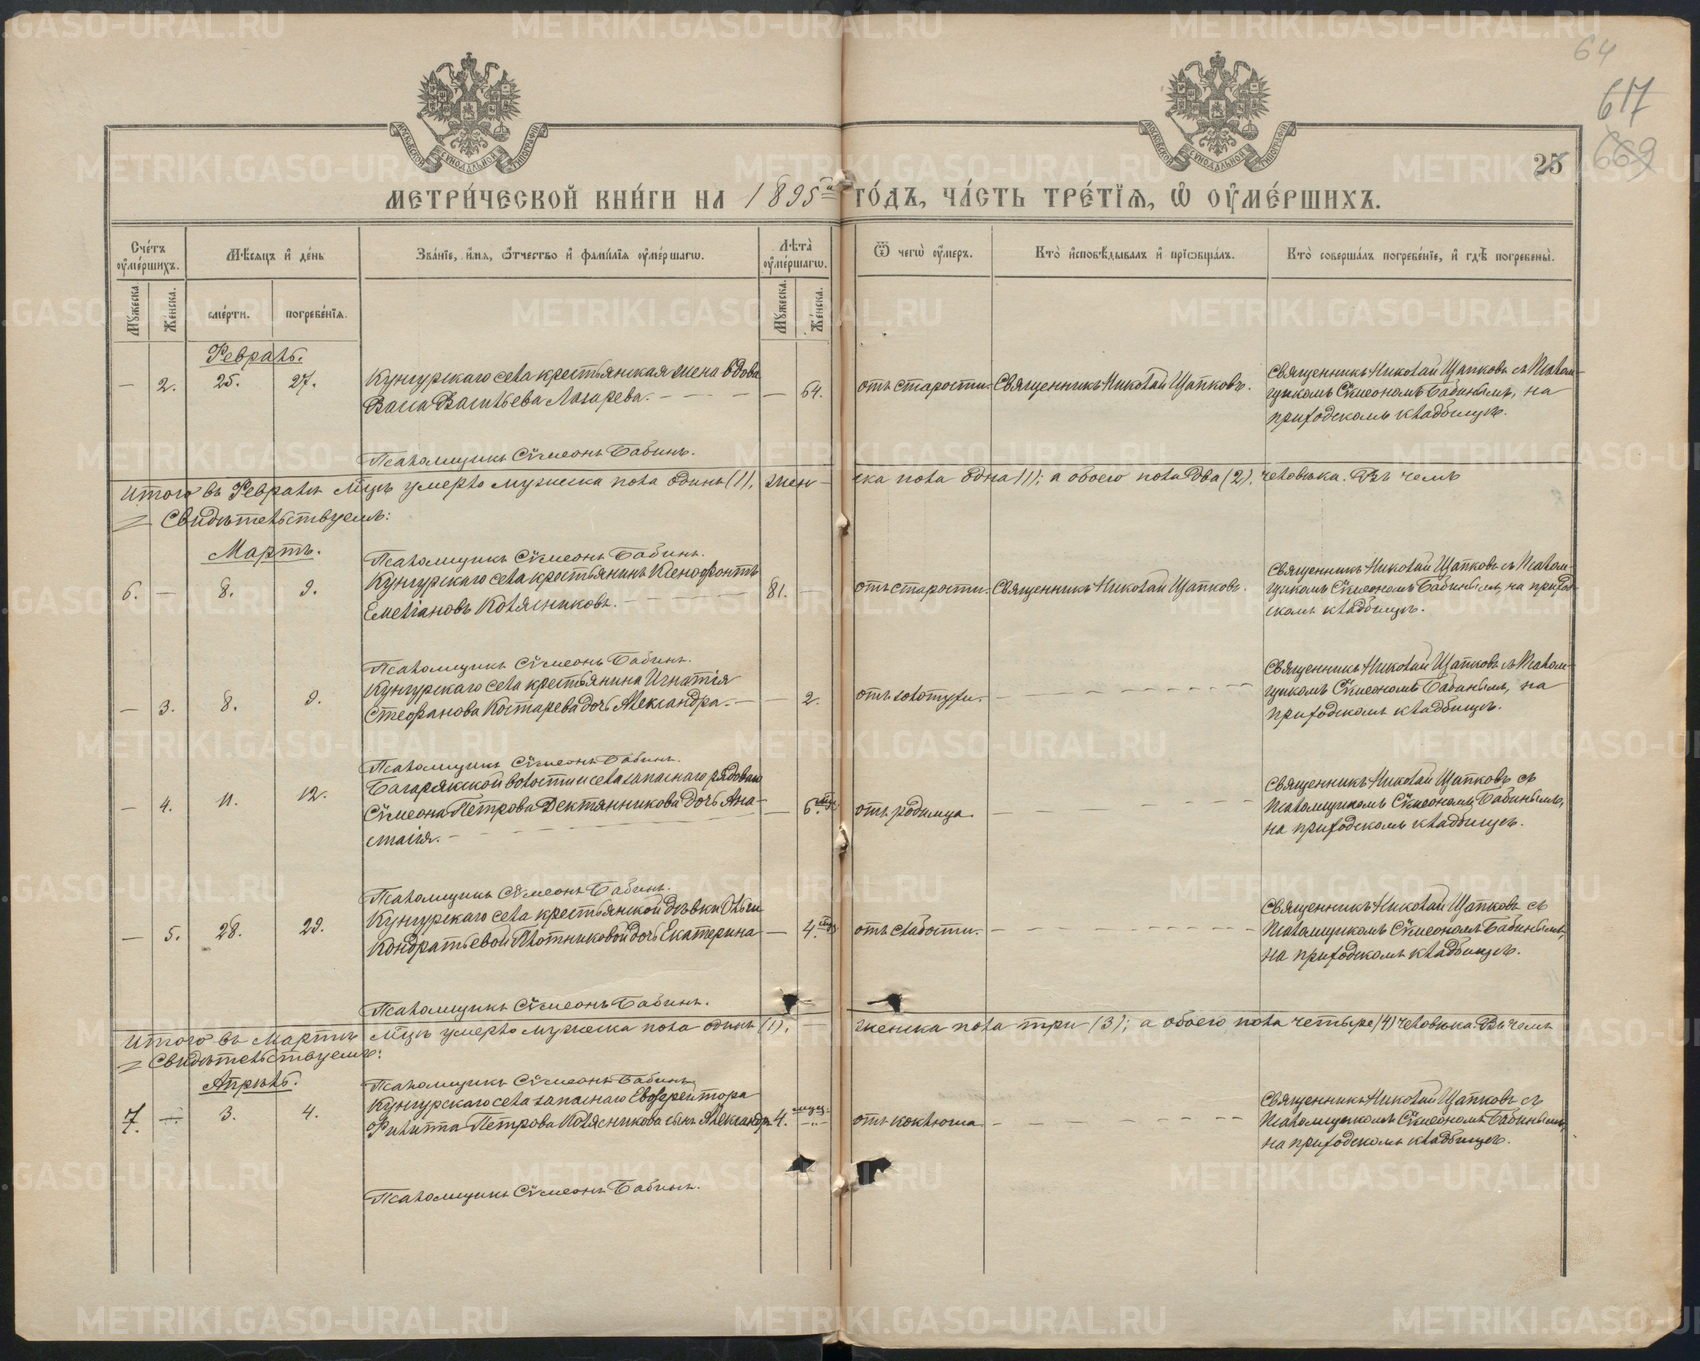 64
617
669
25
МЕТРИ́ЧЕСКОЙ КНИ́ГИ НА 1895й ГО́ДЪ, ЧА́СТЬ ТРЕ́ТІѦ, Ѡ҆ ОУ҆МЕ́РШИХЪ.
Сче́тъ оу҆ме́ршихъ.
Мѣ́сяцъ и҆ де́нь
Зва́нїе, и҆́мѧ, ѻ҆́тчество и҆ фами́лїѧ оу҆ме́ршагѡ.
Лѣ́та оу҆ме́ршагѡ.
Ѿ чегѡ̀ оу҆́меръ.
Кто̀ и҆сповѣ́дывалъ и҆ прїѡбща́лъ.
Кто̀ соверша́лъ погребе́нїе, и҆ гдѣ̀ погребены̀.
Мꙋ́жеска
Же́нска.
сме́рти.
погребе́нїѧ.
Мꙋ́жеска.
Же́нска.
Февраль.
— 2. 25. 27. Кунгурскаго села крестьянская жена вдова
Васса Васильева Лазарева. — 64.
отъ старости. Священникъ Николай Щапковъ.
Священникъ Николай Щапковъ съ Псалом-
щикомъ Сѵмеономъ Бабинымъ, на
приходскомъ кладбищѣ.
Псаломщикъ Сѵмеонъ Бабинъ.
Итого въ Февралѣ м-цѣ умерло мужеска пола одинъ (1), жен-
ска пола одна (1); а обоего пола два (2) человѣка. Въ чемъ
Свидѣтельствуемъ:
Мартъ.
Псаломщикъ Сѵмеонъ Бабинъ.
6. — 8. 9. Кунгурскаго села крестьянинъ Ксенофонтъ
Емельяновъ Котясниковъ. 81. —
отъ старости. Священникъ Николай Щапковъ.
Священникъ Николай Щапковъ съ Псалом-
щикомъ Сѵмеономъ Бабинымъ, на приход-
скомъ кладбищѣ.
Псаломщикъ Сѵмеонъ Бабинъ.
— 3. 8. 9. Кунгурскаго села крестьянина Игнатія
Стефанова Костарева дочь Александра. — 2.
отъ золотухи.
Священникъ Николай Щапковъ съ Псалом-
щикомъ Сѵмеономъ Бабинымъ, на
приходскомъ кладбищѣ.
Псаломщикъ Сѵмеонъ Бабинъ.
— 4. 11. 12. Багарякской волости и села запаснаго рядоваго
Сѵмеона Петрова Дектянникова дочь Ана-
стасія. — 6 мѣс.
отъ родимца.
Священникъ Николай Щапковъ съ
Псаломщикомъ Сѵмеономъ Бабинымъ,
на приходскомъ кладбищѣ.
Псаломщикъ Сѵмеонъ Бабинъ.
— 5. 28. 29. Кунгурскаго села крестьянской дѣвки Ольги
Кондратьевой Плотниковой дочь Екатерина — 4.
отъ слабости.
Священникъ Николай Щапковъ съ
Псаломщикомъ Сѵмеономъ Бабинымъ,
на приходскомъ кладбищѣ.
Псаломщикъ Сѵмеонъ Бабинъ.
Итого въ Мартѣ м-цѣ умерло мужеска пола одинъ (1),
женска пола три (3); а обоего пола четыре (4) человѣка. Въ чемъ
Свидѣтельствуемъ:
Апрѣль.
Псаломщикъ Сѵмеонъ Бабинъ.
7. — 3. 4. Кунгурскаго села запаснаго Евфрейтора
Филиппа Петрова Котясникова сынъ Александръ. 4. мѣсяц.
отъ коклюша
Священникъ Николай Щапковъ съ
Псаломщикомъ Сѵмеономъ Бабинымъ,
на приходскомъ кладбищѣ.
Псаломщикъ Сѵмеонъ Бабинъ.
METRIKI.GASO-URAL.RU